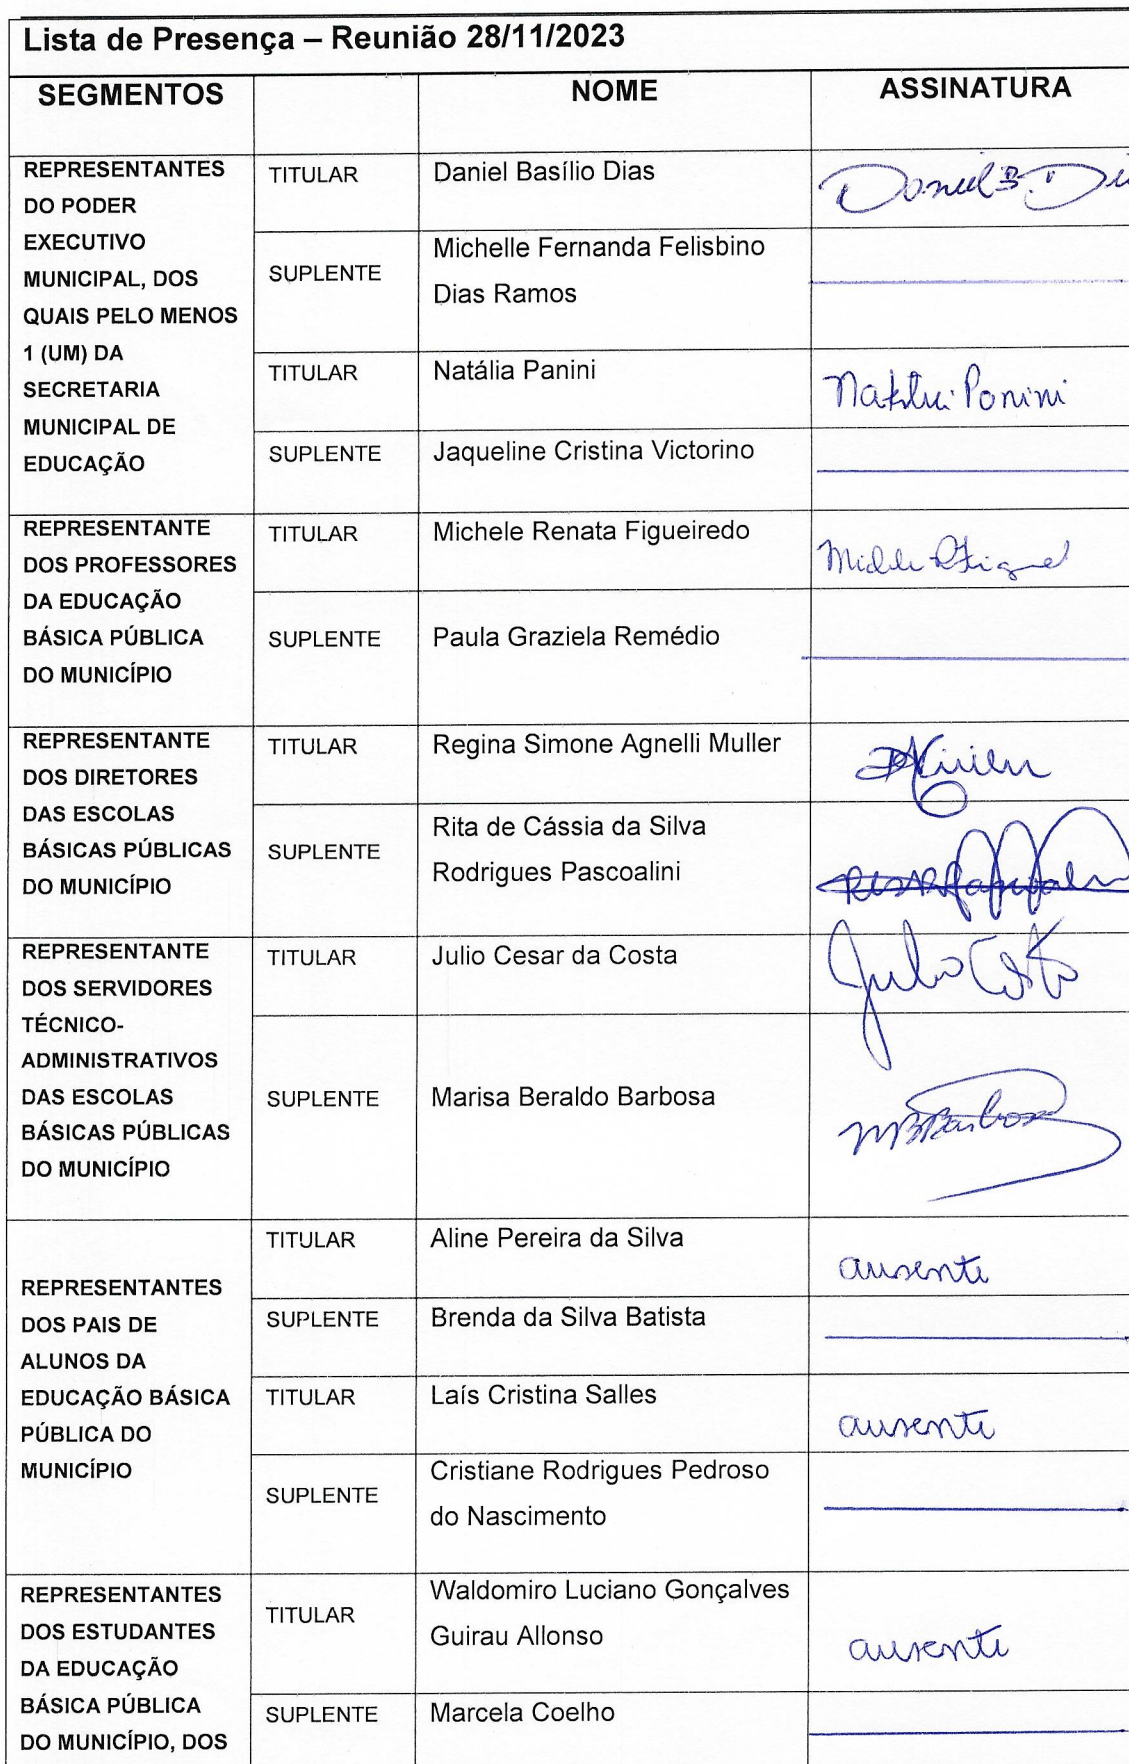 Lista de Presença – Reunião 28/11/2023
SEGMENTOS NOME ASSINATURA
REPRESENTANTES
DO PODER
EXECUTIVO
MUNICIPAL, DOS
QUAIS PELO MENOS
1 (UM) DA
SECRETARIA
MUNICIPAL DE
EDUCAÇÃO
TITULAR Daniel Basílio Dias Daniel B. Di
SUPLENTE Michelle Fernanda Felisbino
Dias Ramos
TITULAR Natália Panini Natália Panini
SUPLENTE Jaqueline Cristina Victorino
REPRESENTANTE
DOS PROFESSORES
DA EDUCAÇÃO
BÁSICA PÚBLICA
DO MUNICÍPIO
TITULAR Michele Renata Figueiredo
SUPLENTE Paula Graziela Remédio
REPRESENTANTE
DOS DIRETORES
DAS ESCOLAS
BÁSICAS PÚBLICAS
DO MUNICÍPIO
TITULAR Regina Simone Agnelli Muller
SUPLENTE Rita de Cássia da Silva
Rodrigues Pascoalini
REPRESENTANTE
DOS SERVIDORES
TÉCNICO-
ADMINISTRATIVOS
DAS ESCOLAS
BÁSICAS PÚBLICAS
DO MUNICÍPIO
TITULAR Julio Cesar da Costa Julio Costa
SUPLENTE Marisa Beraldo Barbosa MBBarbosa
REPRESENTANTES
DOS PAIS DE
ALUNOS DA
EDUCAÇÃO BÁSICA
PÚBLICA DO
MUNICÍPIO
TITULAR Aline Pereira da Silva ausente
SUPLENTE Brenda da Silva Batista
TITULAR Laís Cristina Salles ausente
SUPLENTE Cristiane Rodrigues Pedroso
do Nascimento
REPRESENTANTES
DOS ESTUDANTES
DA EDUCAÇÃO
BÁSICA PÚBLICA
DO MUNICÍPIO, DOS
TITULAR Waldomiro Luciano Gonçalves
Guirau Allonso ausente
SUPLENTE Marcela Coelho